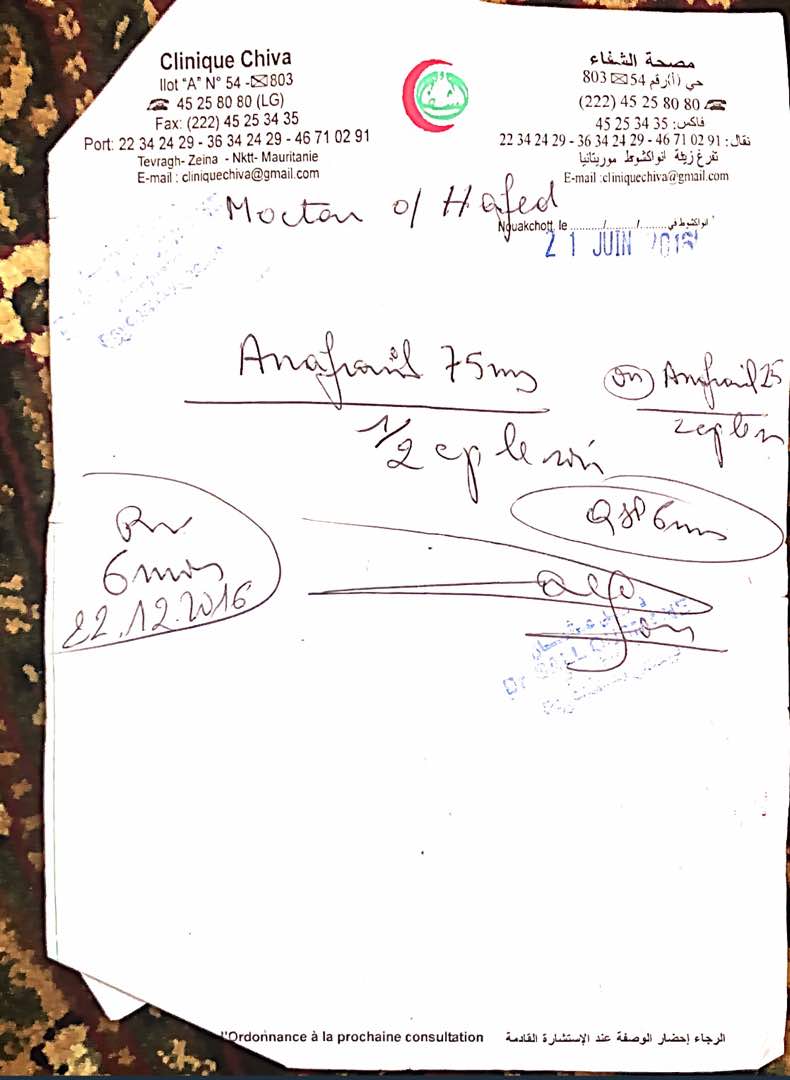 Clinique Chiva
Ilot "A" N° 54 -✉803
☎ 45 25 80 80 (LG)
Fax: (222) 45 25 34 35
Port: 22 34 24 29 - 36 34 24 29 - 46 71 02 91
Tevragh- Zeina - Nktt- Mauritanie
E-mail : cliniquechiva@gmail.com
مصحة الشفاء
حي (أ)رقم 54 ✉ 803
(222) 45 25 80 80 ☎
فاكس: 45 25 34 35
نقال: 22 34 24 29 - 36 34 24 29 - 46 71 02 91
تفرغ زينة انواكشوط موريتانيا
E-mail :cliniquechiva@gmail.com
Moctar o/ Hafed
Nouakchott, le ........../........./.......... انواكشوط في
21 JUIN 2016
Anafranil 75mg
1/2 cp le soir
ou Anafranil 25
2 cp le
QSP 6 mois
Rv
6 mois
22.12.2016
Dr
l'Ordonnance à la prochaine consultation
الرجاء إحضار الوصفة عند الإستشارة القادمة